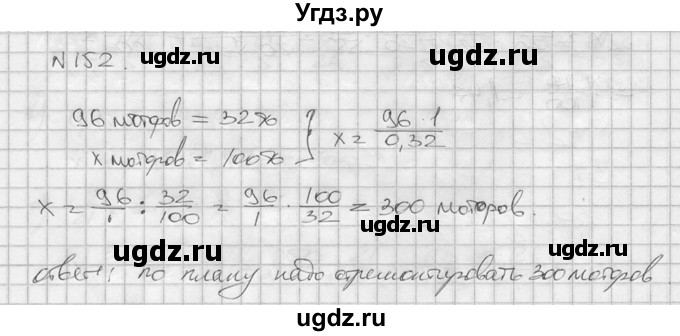 Угдз.ру
N152.
ugdz.ru ugdz.ru
96 моторов = 32%
x моторов = 100% } x = 96 · 1 / 0,32
ugdz.ru ugdz.ru
x = 96/1 : 32/100 = 96/1 · 100/32 = 300 моторов.
ugdz.ru ugdz.ru
ответ: по плану надо отремонтировать 300 моторов
ugdz.ru ugdz.ru